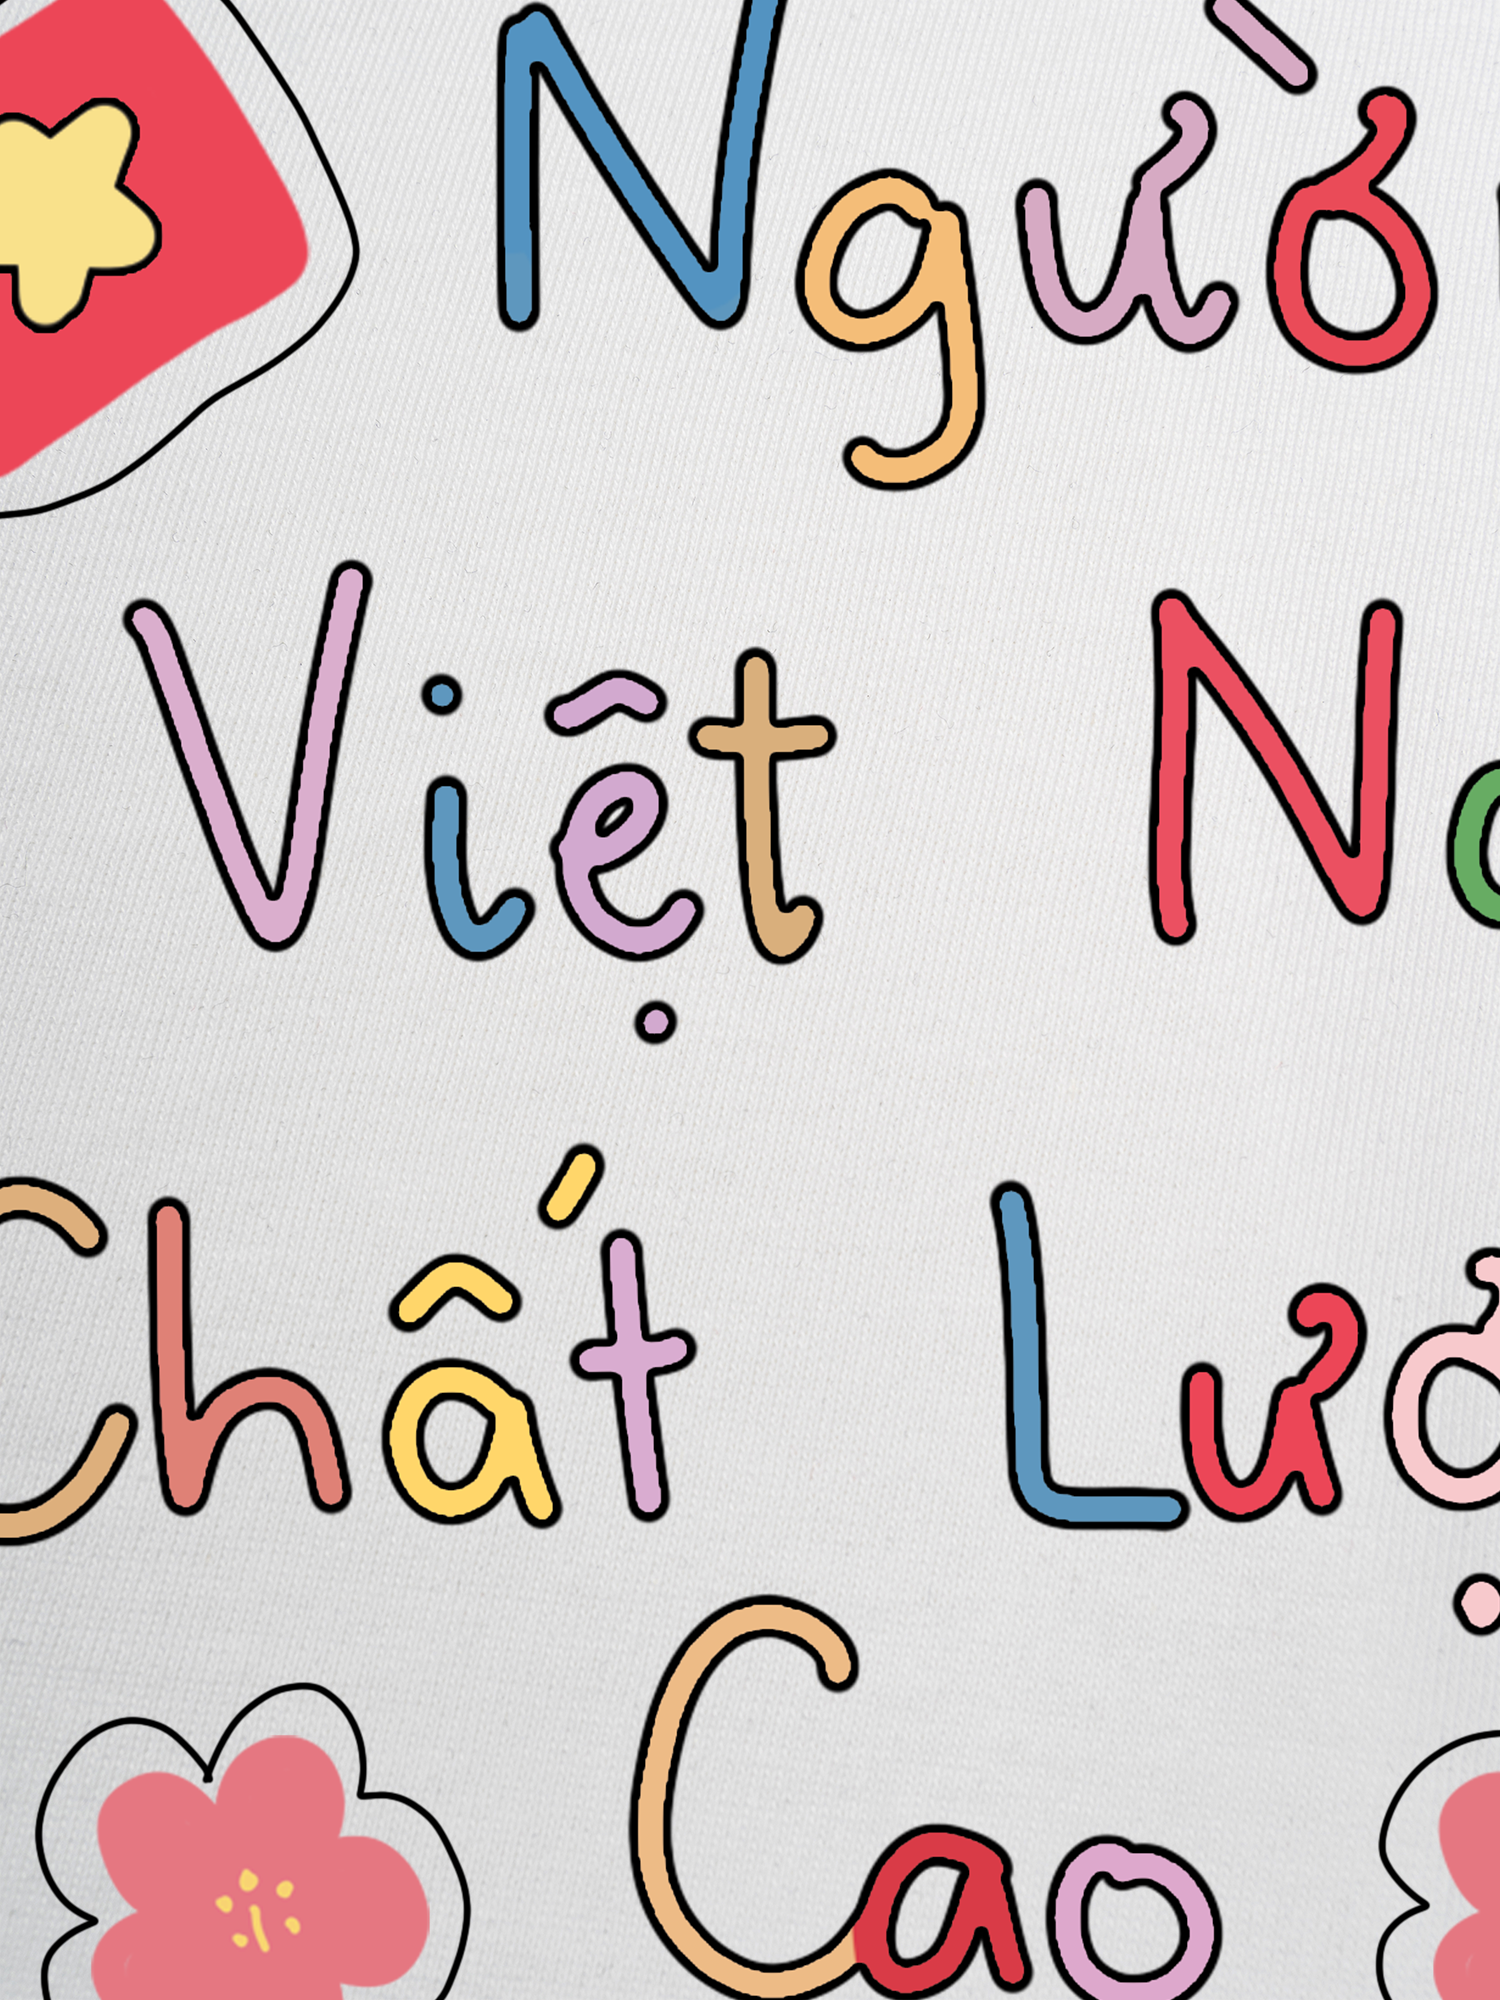 Ngườ
Việt Na
Chất Lượ
Cao